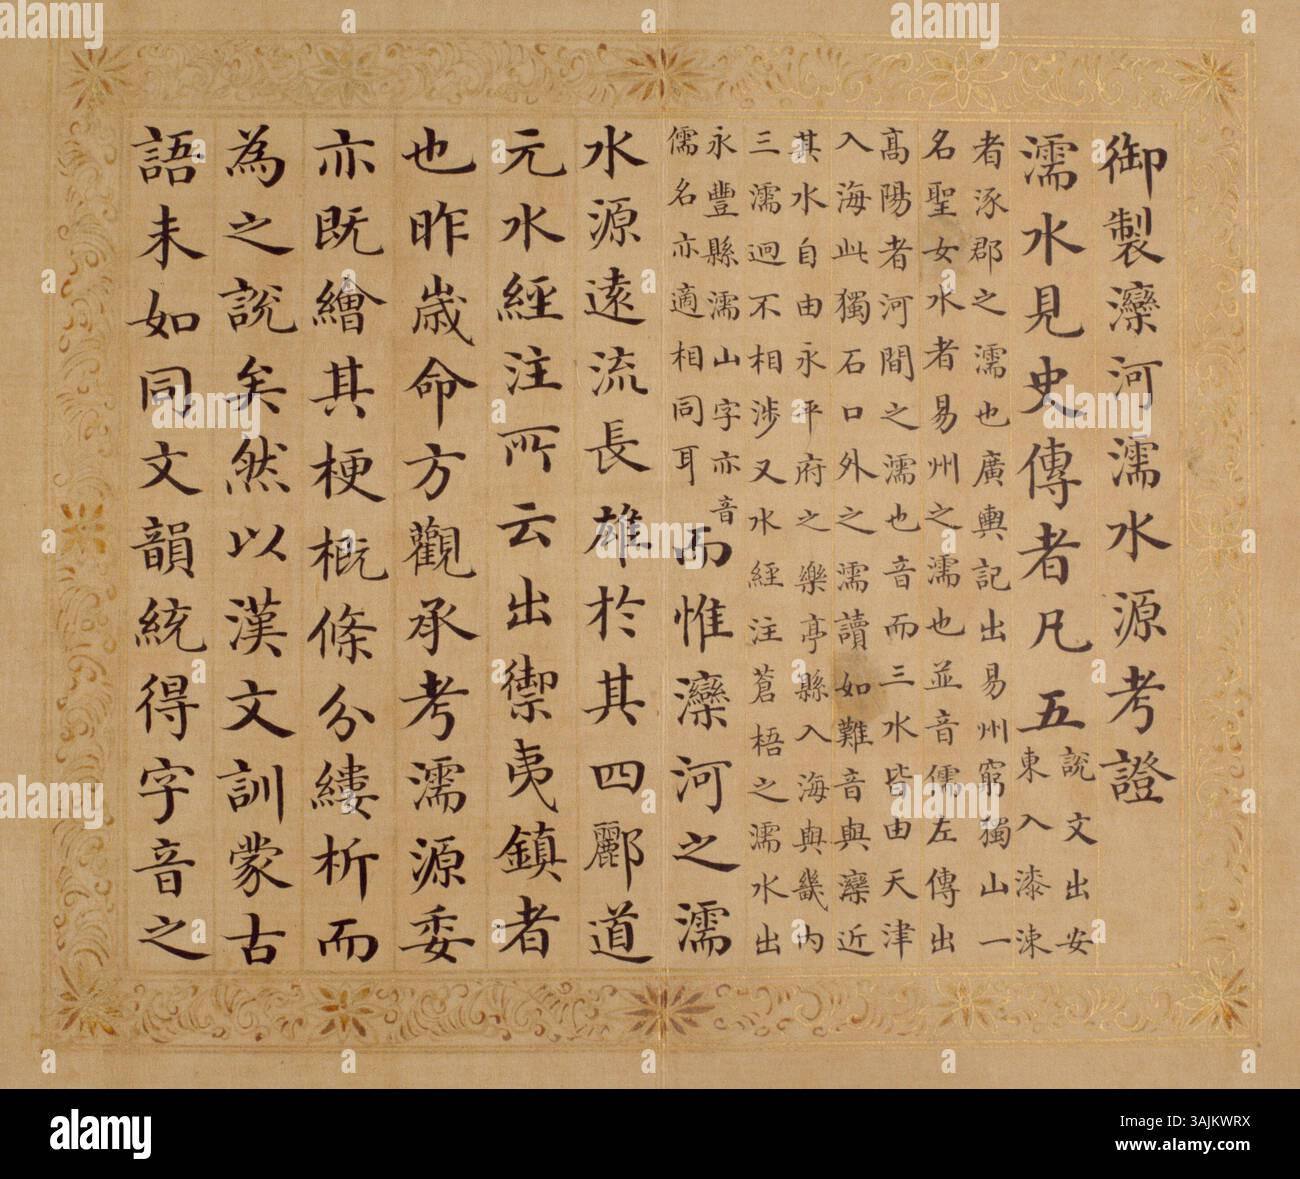 御製灤河濡水源考證
濡水見史傳者凡五説文出安
東入漆涑
者涿郡之濡也廣輿記出易州窮獨山一
名聖女水者易州之濡也並音儒左傳出
髙陽者河間之濡也音而三水皆由天津
入海此獨石口外之濡讀如難音與灤近
其水自由永平府之樂亭縣入海與畿內
三濡迥不相涉又水經注蒼梧之濡水出
永豐縣濡山字亦音
儒名亦適相同耳而惟灤河之濡
水源遠流長雄於其四酈道
元水經注所云出禦夷鎮者
也昨歲命方觀承考濡源委
亦既繪其梗概條分縷析而
為之說矣然以漢文訓蒙古
語未如同文韻統得字音之
alamy
Image ID: 3AJKWRX
www.alamy.com